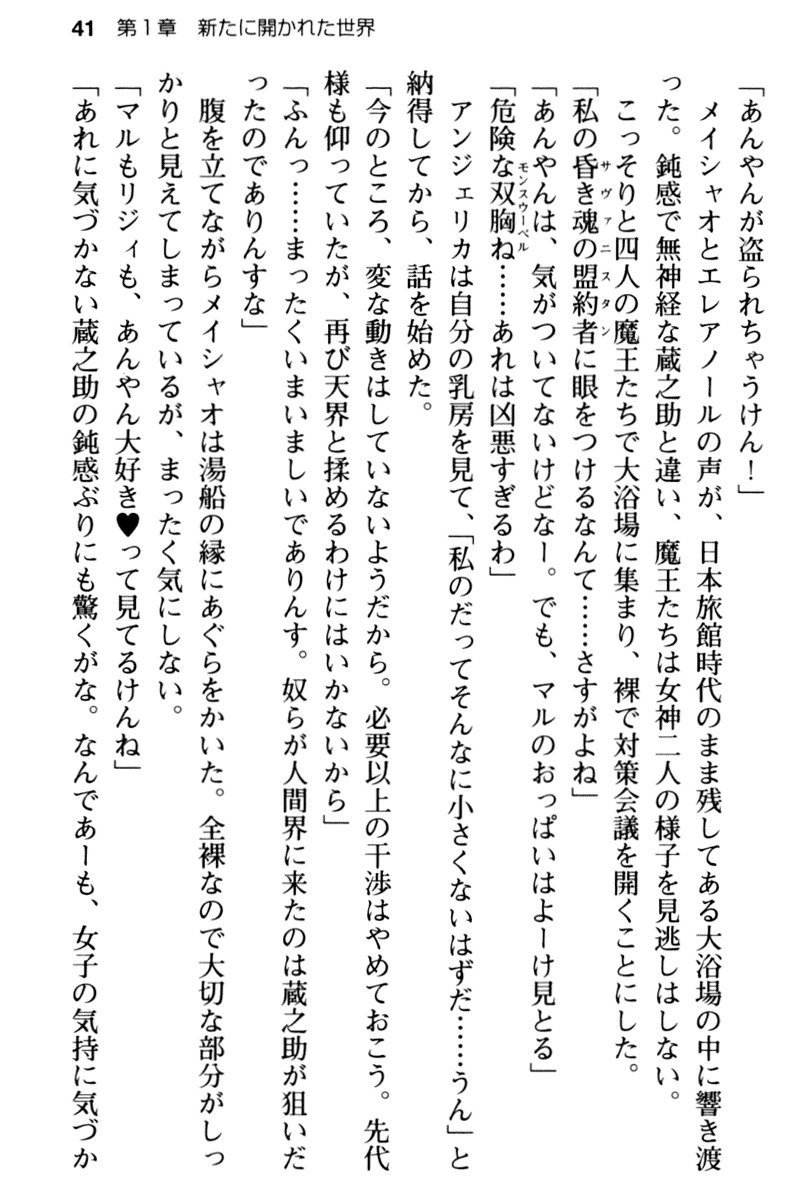 41 第1章 新たに開かれた世界
「あんやんが盗られちゃうけん！」
メイシャオとエレアノールの声が、日本旅館時代のまま残してある大浴場の中に響き渡
った。鈍感で無神経な蔵之助と違い、魔王たちは女神二人の様子を見逃しはしない。
こっそりと四人の魔王たちで大浴場に集まり、裸で対策会議を開くことにした。
「私の昏き魂の盟約者に眼をつけるなんて……さすがよね」
サヴァニスタン
「あんやんは、気がついてないけどなー。でも、マルのおっぱいはよーけ見とる」
「危険な双胸ね……あれは凶悪すぎるわ」
モンスウーベル
アンジェリカは自分の乳房を見て、「私のだってそんなに小さくないはずだ……うん」と
納得してから、話を始めた。
「今のところ、変な動きはしていないようだから。必要以上の干渉はやめておこう。先代
様も仰っていたが、再び天界と揉めるわけにはいかないから」
「ふんっ……まったくいまいましいでありんす。奴らが人間界に来たのは蔵之助が狙いだ
ったのでありんすな」
腹を立てながらメイシャオは湯船の縁にあぐらをかいた。全裸なので大切な部分がしっ
かりと見えてしまっているが、まったく気にしない。
「マルもリジィも、あんやん大好き♥って見てるけんね」
「あれに気づかない蔵之助の鈍感ぶりにも驚くがな。なんであーも、女子の気持に気づか